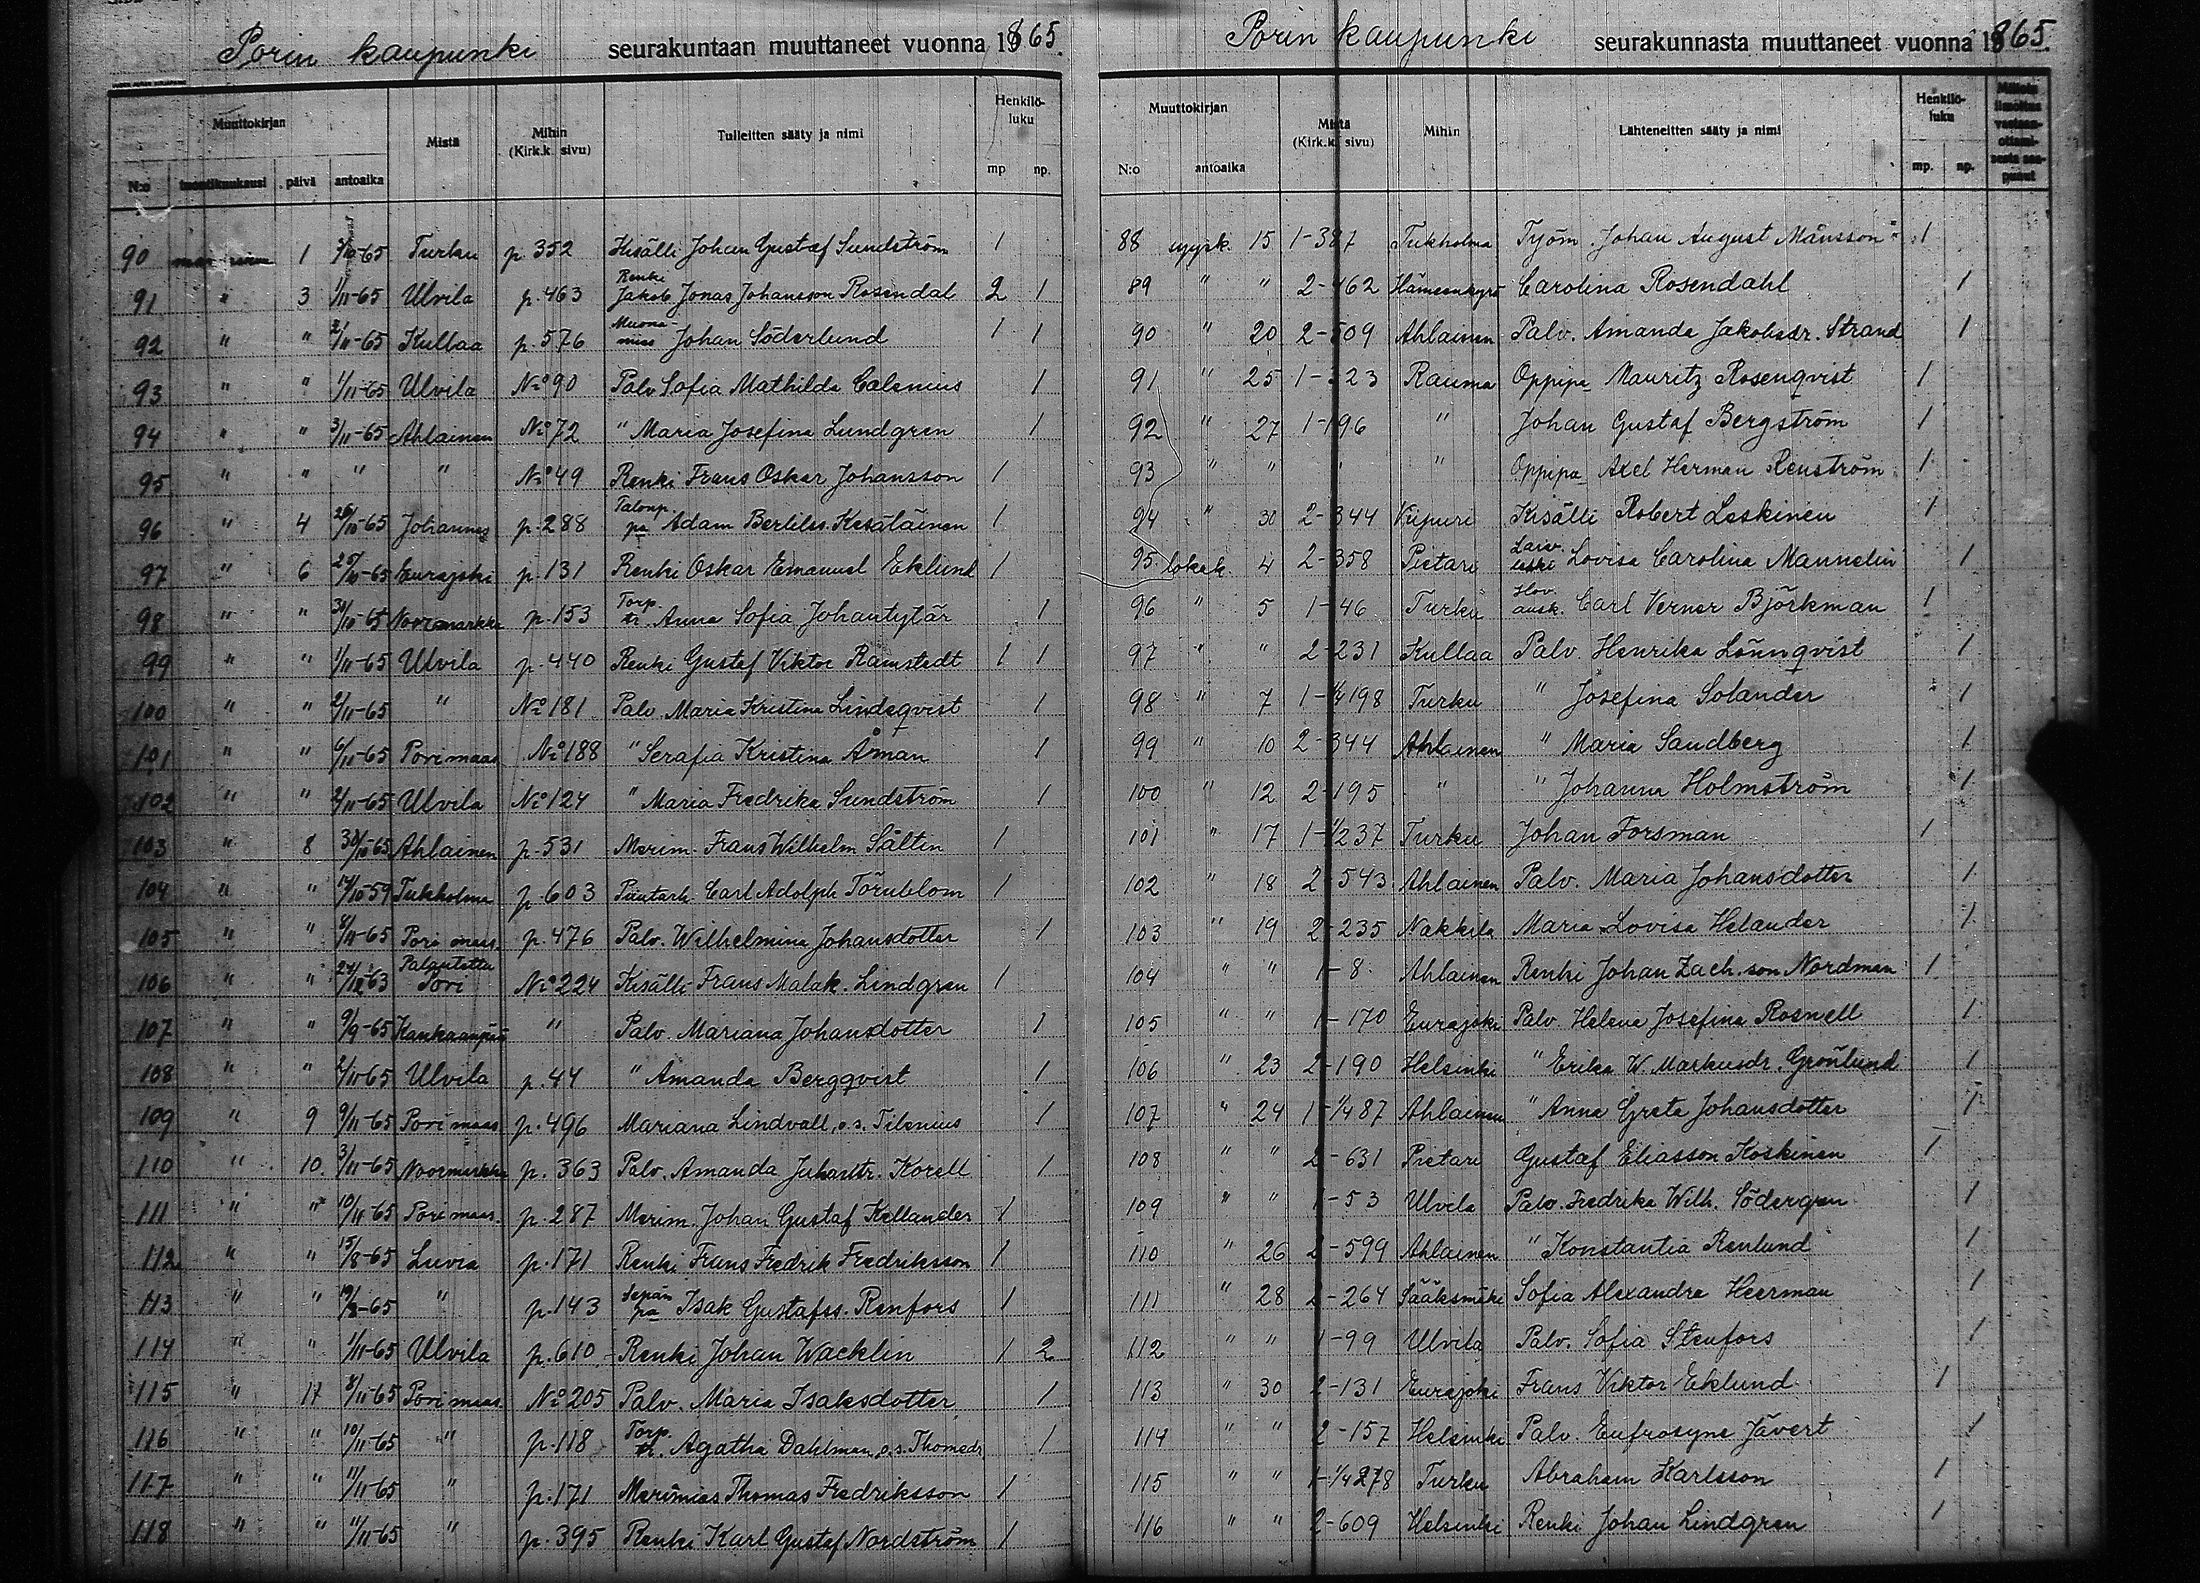 Porin kaupunki seurakuntaan muuttaneet vuonna 1865.
Muuttokirjan Mistä Mihin (Kirk.k. sivu) Tulleitten sääty ja nimi Henkilö-luku
N:o tuontikuukausi päivä antoaika mp np.
90 1 3/10-65 Turku p. 352 Kisälli Johan Gustaf Sundström 1
91 " 3 1/11-65 Ulvila p. 463 Renki Jakob Jonas Johansson Rosendal 2 1
92 " " 2/11-65 Kullaa p. 576 Muona-mies Johan Söderlund 1 1
93 " " 1/11-65 Ulvila No 90 Palv Sofia Mathilda Calenius 1
94 " " 3/11-65 Ahlainen No 72 " Maria Josefina Lundgren 1
95 " " " " No 49 Renki Frans Oskar Johansson 1
96 " 4 26/10-65 Johannes p. 288 Talonp. pa Adam Bertilss. Kesäläinen 1
97 " 6 25/10-65 Eurajoki p. 131 Renki Oskar Emanuel Eklund 1
98 " " 30/10-65 Noormarkku p. 153 Torp. tr. Anna Sofia Johantytär 1
99 " " 1/11-65 Ulvila p. 440 Renki Gustaf Viktor Ramstedt 1 1
100 " " 2/11-65 " No 181 Palv Maria Kristina Lindeqvist 1
101 " " 6/11-65 Pori maas No 188 " Serafia Kristina Åman 1
102 " " 2/11-65 Ulvila No 124 " Maria Fredrika Sundström 1
103 " 8 30/10-65 Ahlainen p. 531 Merim. Frans Wilhelm Sältin 1
104 " " 14/10-59 Tukholma p. 603 Puutarh Carl Adolph Törnblom 1
105 " " 8/11-65 Pori maas. p. 476 Palv. Wilhelmina Johansdotter 1
106 " " 24/12-63 Palautettu Pori No 224 Kisälli Frans Malak. Lindgren 1
107 " " 9/9-65 Kankaanpää " Palv. Mariana Johansdotter 1
108 " " 2/11-65 Ulvila p. 44 " Amanda Bergqvist 1
109 " 9 9/11-65 Pori maas p. 496 Mariana Lindvall, o.s. Tilenius 1
110 " 10. 3/11-65 Noormarkku p. 363 Palv. Amanda Juhantr. Korell 1
111 " " 10/11-65 Pori maas. p. 287 Merim. Johan Gustaf Kellander 1
112 " " 15/8-65 Luvia p. 171 Renki Frans Fredrik Fredriksson 1
113 " " 19/8-65 " p. 143 Sepän pa Isak Gustafss. Renfors 1
114 " " 1/11-65 Ulvila p. 610 Renki Johan Wacklin 1 2
115 " 17 8/11-65 Pori maas No 205 Palv. Maria Isaksdotter 1
116 " " 10/11-65 " p. 118 Torp. tr. Agatha Dahlman, o.s. Thomedr. 1
117 " " 11/11-65 " p. 171 Merimies Thomas Fredriksson 1
118 " " 11/11-65 " p. 395 Renki Karl Gustaf Nordström 1
Porin kaupunki seurakunnasta muuttaneet vuonna 1865.
Muuttokirjan Mistä (Kirk.k. sivu) Mihin Lähteneitten sääty ja nimi Henkilö-luku
N:o antoaika mp. np.
88 syysk. 15 1-387 Tukholma Työm. Johan August Månsson 1
89 " " 2-462 Hämeenkyrö Carolina Rosendahl 1
90 " 20 2-509 Ahlainen Palv. Amanda Jakobsdr. Strand 1
91 " 25 1-323 Rauma Oppipa Mauritz Rosenqvist 1
92 " 27 1-196 " Johan Gustaf Bergström 1
93 " " " " Oppipa Axel Herman Renström 1
94 " 30 2-344 Viipuri Kisälli Robert Leskinen 1
95 lokak. 4 2-358 Pietari Laiv. leski Lovisa Carolina Mannelin 1
96 " 5 1-46 Turku Hov. ausk. Carl Verner Björkman 1
97 " " 2-231 Kullaa Palv Henrika Lönnqvist 1
98 " 7 1-1/4 198 Turku " Josefina Solander 1
99 " 10 2-344 Ahlainen " Maria Sandberg 1
100 " 12 2-195 " " Johanna Holmström 1
101 " 17 1-1/237 Turku Johan Forsman 1
102 " 18 2-543 Ahlainen Palv. Maria Johansdotter 1
103 " 19 2-235 Nakkila Maria Lovisa Helander 1
104 " " 1-8 Ahlainen Renki Johan Zach.son Nordman 1
105 " " 1-170 Eurajoki Palv Helena Josefina Rosnell 1
106 " 23 2-190 Helsinki " Erika W Markusdr. Grönlund 1
107 " 24 1-1/4 87 Ahlainen " Anna Greta Johansdotter 1
108 " " 2-631 Pietari Gustaf Eliasson Koskinen 1
109 " " 1-53 Ulvila Palv. Fredrika Wilh. Södergren 1
110 " 26 2-599 Ahlainen " Konstantia Renlund 1
111 " 28 2-264 Sääksmäki Sofia Alexandra Heerman 1
112 " " 1-99 Ulvila Palv. Sofia Stenfors 1
113 " 30 2-131 Eurajoki Frans Viktor Eklund 1
114 " " 2-157 Helsinki Palv. Eufrosyne Jävert 1
115 " " 1-1/4 278 Turku Abraham Karlsson 1
116 " " 2-609 Helsinki Renki Johan Lindgren 1